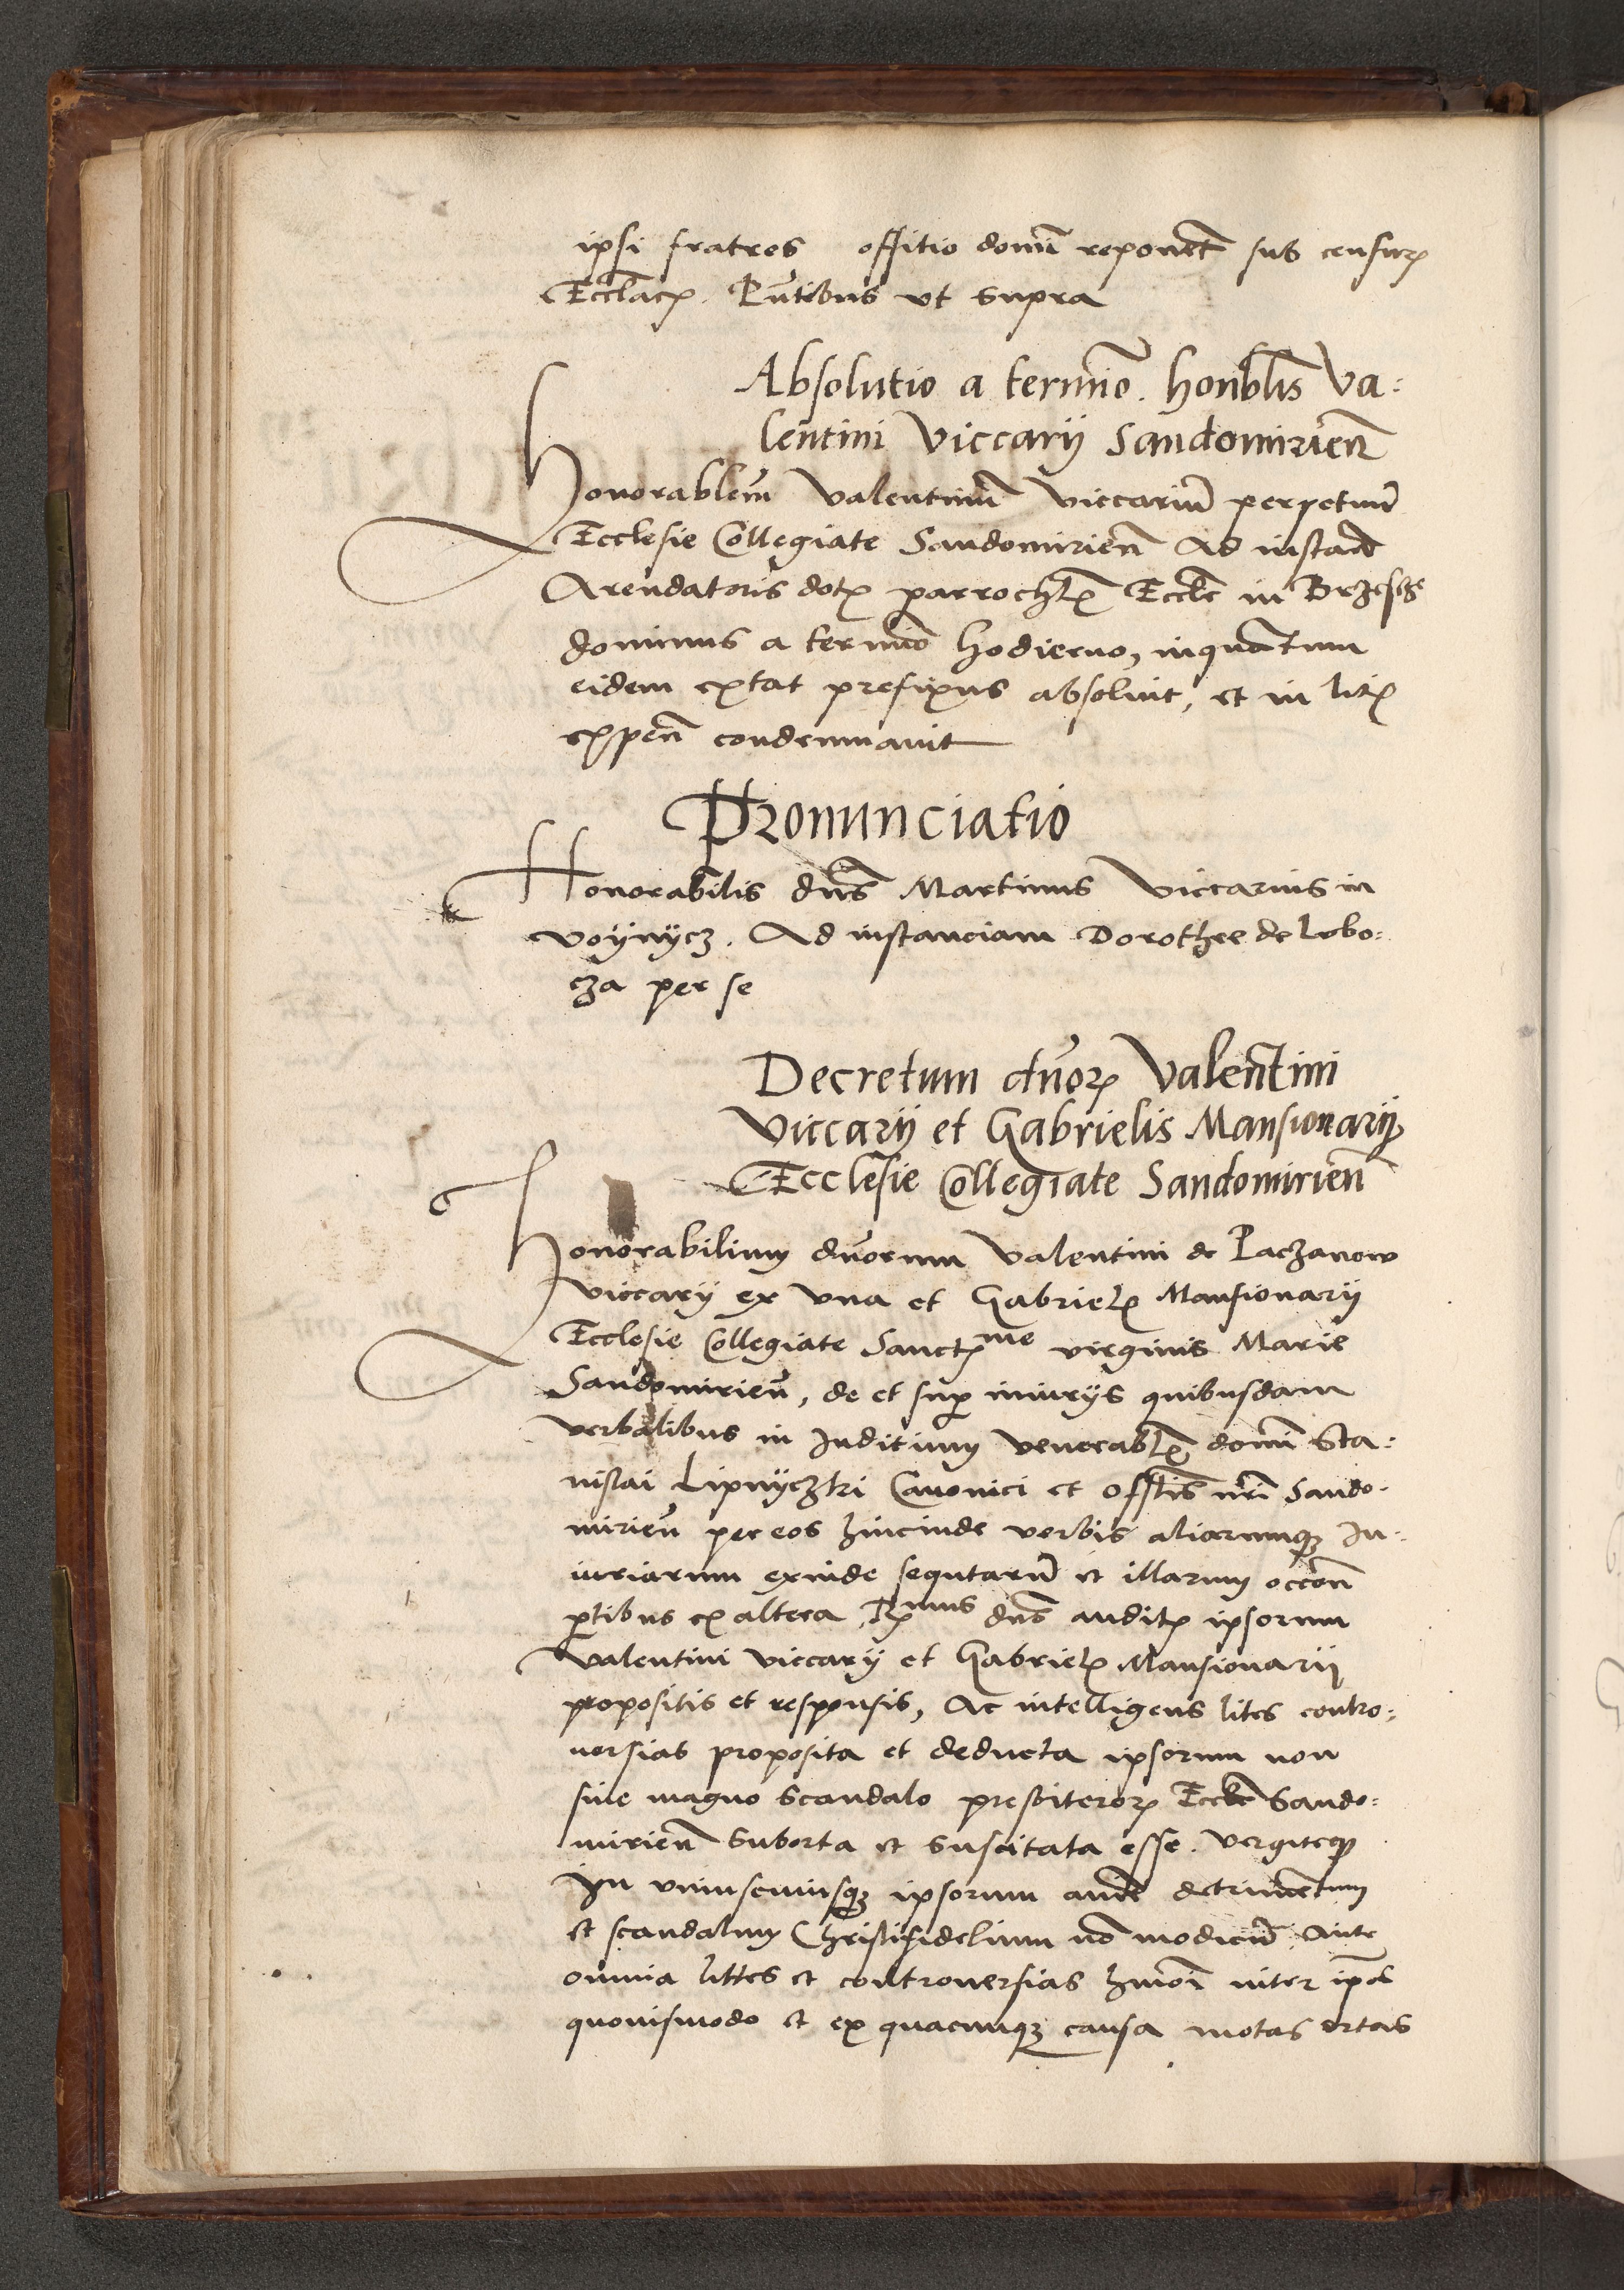 ipsi fratres offitio domī reponēt sub censurꝭ
Eccl̄acꝭ. Pn̄tibus vt supra
Absolutio a termīo. honbl̄is Va:
lentini Viccarij Sandomirien̄
Honorablem̄ Valentinū Viccariū perpetuū
Ecclesie Collegiate Sandomirien̄ Ad instan̄
Arendatoris dotꝭ parrochl̄ꝭ Eccl̄e in
dominus a termīo hodierno, inquantum
eidem extat prefixus absoluit, et in litꝭ
expen̄ condemnauit
Pronunciatio
Honorabilis dn̄s Martinus Viccarius in
Voijnijcz. Ad instanciam Dorothee de Lubo:
cza per se
Decretum dn̄oꝝ Valentini
Viccarij et Gabrielis Mansionarij
Ecclesie Collegiate Sandomirien̄
Honorabilium dn̄orum Valentini de Paczanow
viccarij ex vna et Gabrielꝭ Mansionarij
Ecclesie Collegiate Sanctꝭme virginis Marie
Sandomirien̄, de et sup̱ iniurijs quibusdam
verbalibus in Juditium venerablꝭ domī Sta:
nislai Lipnijczki Canonici et Offl̄is nr̄i Sando:
mirien̄ per eos hincinde verbis aliarumqꝫ In:
iuriarum exinde sequtarū et illarum occon̄
ꝑtibus ex altera, Rꝭmus dn̄s auditꝭ ipsorum
Valentini viccarij et Gabrielꝭ Mansionarij
propositis et responsis, Ac intelligens lites contro:
uersias proposita et deducta ipsorum non
sine magno scandalo presbiteroꝝ Eccl̄e Sando:
mirien̄ suborta et suscitata esse. vergiteqꝫ
In vniuscuiusqꝫ ipsorum detrimentum
et scandalum Christifidelium nō modicū. Ante
omnia littes et controuersias hmōi inter ip̄os
quouismodo et ex quacunqꝫ causa motas ortas